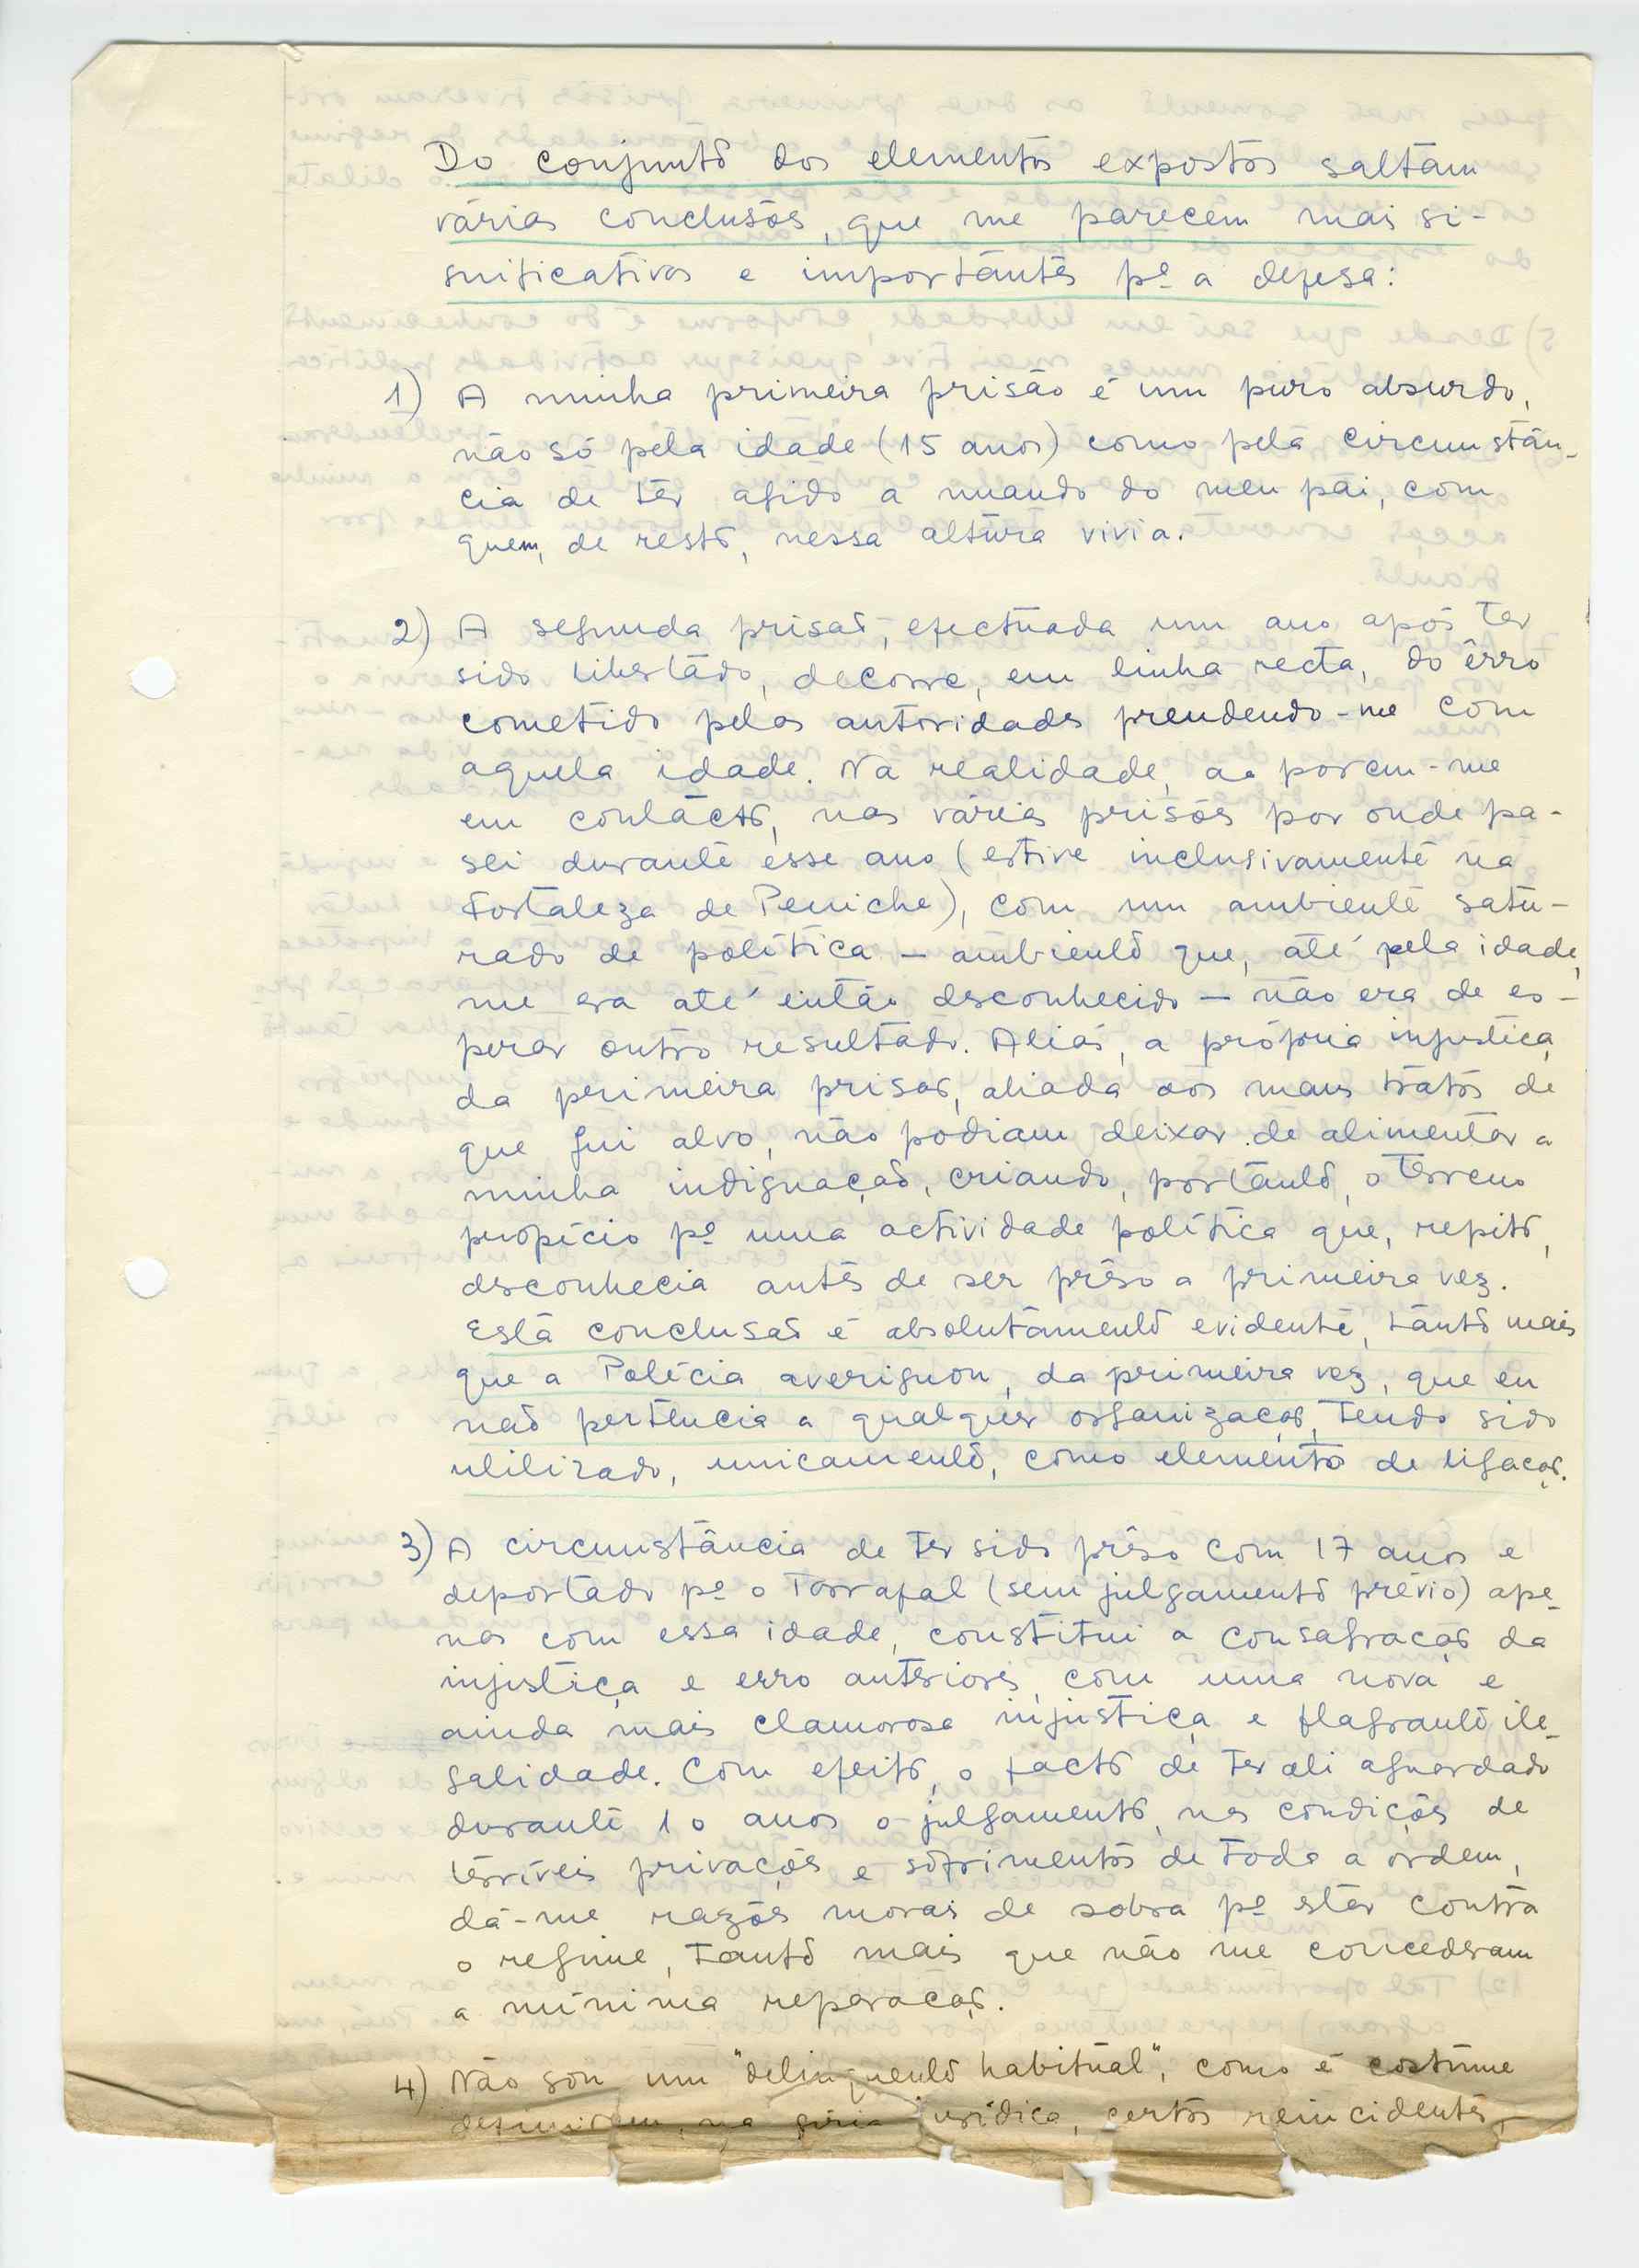 Do conjunto dos elementos expostos saltam
várias conclusões, que me parecem mais si-
gnificativas e importantes pª a defesa:
1) A minha primeira prisão é um puro absurdo,
não só pela idade (15 anos) como pela circunstân-
cia de ter agido a mando do meu pai, com
quem, de resto, nessa altura vivia.
2) A segunda prisão, efectuada um ano após ter
sido libertado, decorre, em linha recta, do êrro
cometido pelas autoridades prendendo-me com
aquela idade. Na realidade, ao porem-me
em contacto, nas várias prisões por onde pa-
sei durante esse ano (estive inclusivamente na
Fortaleza de Peniche), com um ambiente satu-
rado de política — ambiente que, até pela idade,
me era até então desconhecido — não era de es-
perar outro resultado. Aliás, a própria injustiça
da primeira prisão, aliada aos maus tratos de
que fui alvo, não podiam deixar de alimentar a
minha indignação, criando, portanto, o terreno
propício pª uma actividade política que, repito,
desconhecia antes de ser prêso a primeira vez.
Esta conclusão é absolutamente evidente, tanto mais
que a Polícia averiguou, da primeira vez, que eu
não pertencia a qualquer organização, tendo sido
utilizado, unicamente, como elemento de ligação.
3) A circunstância de ter sido prêso com 17 anos e
deportado pª o Tarrafal (sem julgamento prévio) ape-
nas com essa idade, constitui a consagração da
injustiça e erro anteriores, com uma nova e
ainda mais clamorosa injustiça e flagrante ile-
galidade. Com efeito, o facto de ter ali aguardado
durante 10 anos o julgamento, nas condições de
terríveis privações e sofrimentos de toda a ordem,
dá-me razões morais de sobra pª estar contra
o regime, tanto mais que não me concederam
a mínima reparação.
4) Não sou um "delinquente habitual", como é costume
definirem, na gíria jurídica, certos reincidentes,